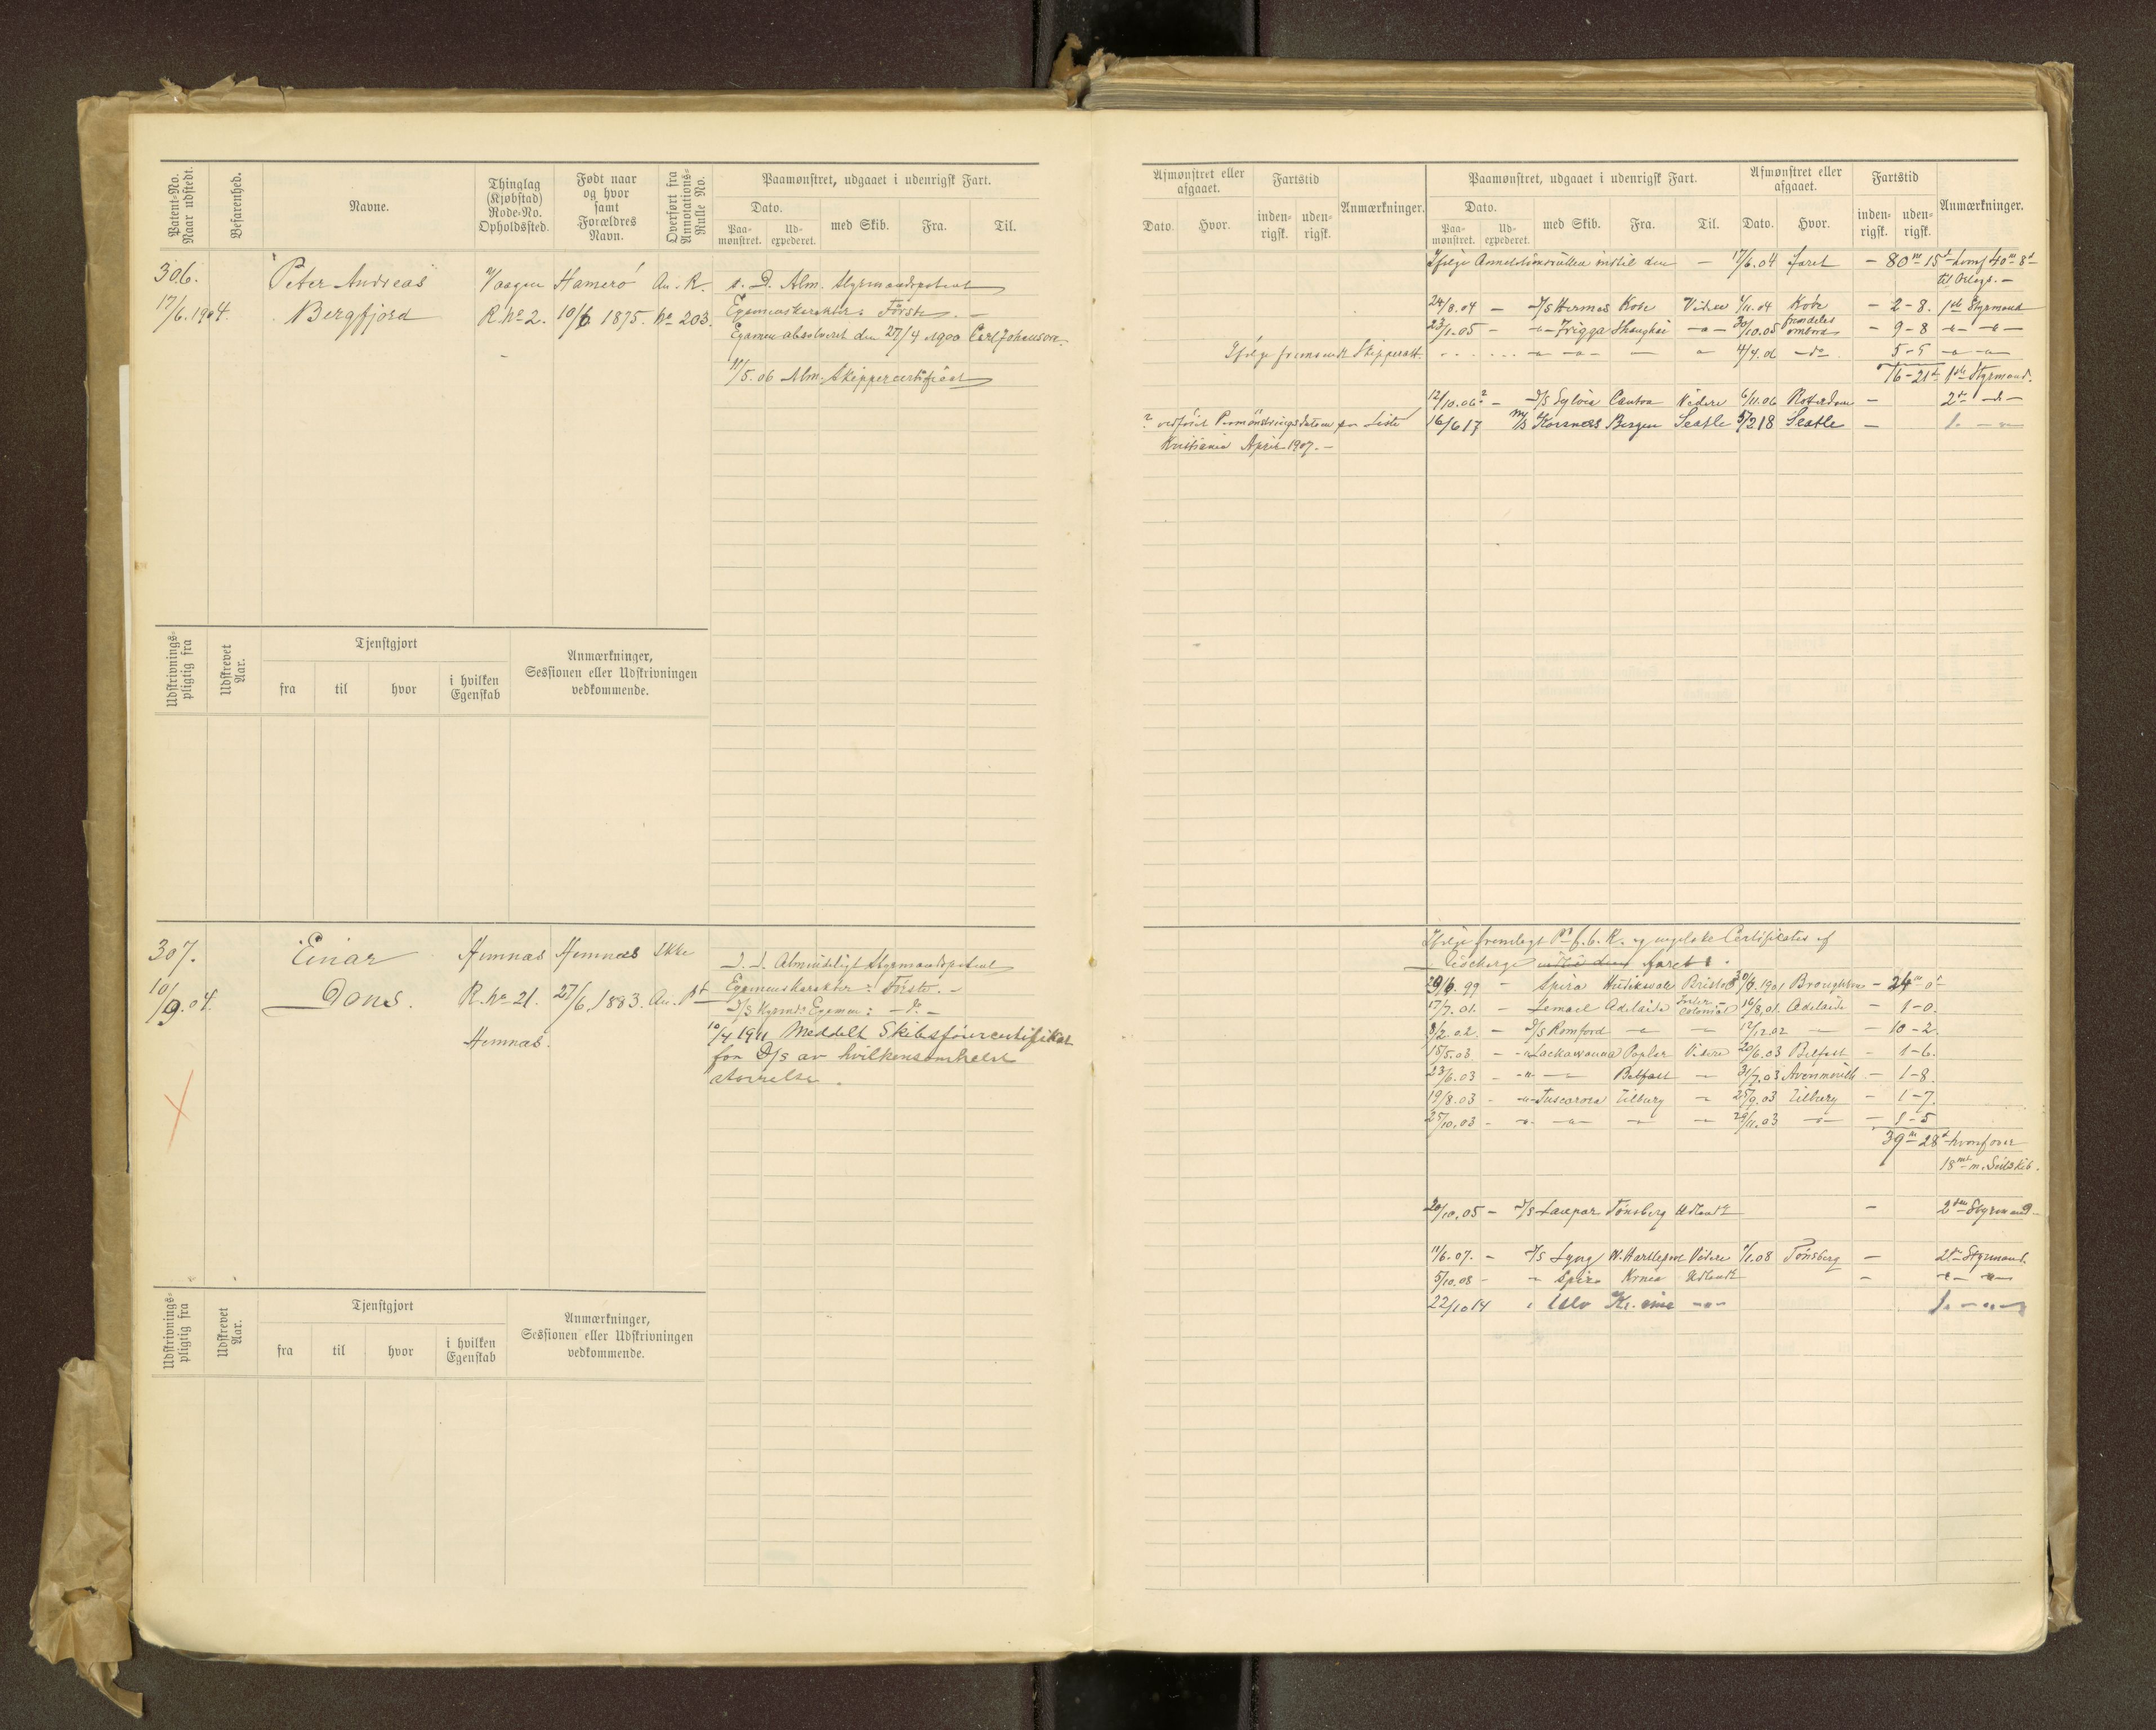 Patent-No. Naar udstedt.
Befarenhed.
Navne.
Thinglag (Kjøbstad) Rode-No. Opholdssted.
Født naar og hvor samt Forældres Navn.
Overført fra Annotations-Rulle No.
Paamønstret, udgaaet i udenrigsk Fart.
Dato.
Paa-mønstret.
Ud-expederet.
med Skib.
Fra.
Til.
306.
17/6.1904.
Peter Andreas
Bergfjord
Vaagen
R.No 2.
Hamerö
10/6 1875.
An. R.
No 203.
s. D. Alm. Styrmandspatent
Examenskarakter: Første. —
Examen absolveret den 27/4 1900 Carl Johansvern.
11/5.06 Alm. Skippercertificat
Udskrivnings-pligtig fra
Udskrevet Aar.
Tjenstgjort
fra
til
hvor
i hvilken Egenskab
Anmærkninger, Sessionen eller Udskrivningen vedkommende.
307.
10/9.04.
Einar
Dons.
Hemnas
R.No 21.
Hemnas.
Hemnæs
27/6.1883.
Ikke
An. Pt
s. D. Almindeligt Styrmandspatent
Examenskarakter: Første. —
D/S Kyrmds Examen: — do. —
10/4 1911 Meddelt Skibsførercertifikat
for D/s av hvilkensomhelst
størrelse.
Udskrivnings-pligtig fra
Udskrevet Aar.
Tjenstgjort
fra
til
hvor
i hvilken Egenskab
Anmærkninger, Sessionen eller Udskrivningen vedkommende.
Afmønstret eller afgaaet.
Dato.
Hvor.
Fartstid
inden-rigsk.
uden-rigsk.
Anmærkninger.
Paamønstret, udgaaet i udenrigsk Fart.
Dato.
Paa-mønstret.
Ud-expederet.
med Skib.
Fra.
Til.
Afmønstret eller afgaaet.
Dato.
Hvor.
Fartstid
inden-rigsk.
uden-rigsk.
Anmærkninger.
Ifølge Annotationsrullen indtil den — 17/6.04 faret — 80 m 15 d hvoraf 40 m 8 d
til Orlogs. —
24/8.04 — D/S Hermes Kobe Videre 1/11.04 Kobe — 2-8. 1ste Styrmand
23/1.05 — -"- Frigga Shanghai -"- 30/10.05 fremdeles ombord — 9-8 -"- -"-
Ifølge fremsendt Skipperatt. . . . . . . -"- -"- — " 4/4.06 — do — 5-5 -"- -"-
16-21 d 1ste Styrmand.
12/10.06 ? — D/S Sylvia Canton Videre 6/11.06 Rotterdam — 2de -"-
? vedføiet Paamønstringsdatoen paa Liste
Kristiania April 1907. —
16/6 17 M/S Storsnæs Bergen Seatle 5/2 18 Seatle — 1. — "
Ifølge fremlagt Pt f. b. R. og engelske Certificates of
Discharge faret:
29/6.99 — Spira Hudikswale Bristol 30/6.1901 Broughton — 24 m 0 d
17/7.01. — Lemael Adelaide Inter-colonial 16/8.01. Adelaide — 1-0.
8/2.02. — D/S Romford — — 12/12.02 — — 10-2.
15/5.03 — -"- Lackawanna Poplar Videre 20/6.03 Belfast — 1-6.
23/6.03 — -"- — Belfast — 31/7.03 Avonmouth — 1-8.
19/8.03 — -"- Tuscarora Tilbury — 25/9.03 Tilbury — 1-7.
25/10.03 — -"- -"- — — 29/11.03 — — 1-5
39 m 28 d hvoraf over
18 md m. Seilskib.
20/10.05 — D/S Laupar Tønsberg Udlandt — 2den Styrmand
11/6.07. — D/S Lyng W. Hartlepool Videre 9/1.08 Tønsberg — 2den Styrmand.
5/10.08 — " Spero Krnia Udlandt — -"- -"-
22/10 14 " Ulv Kr.ania -"- 1. — " —